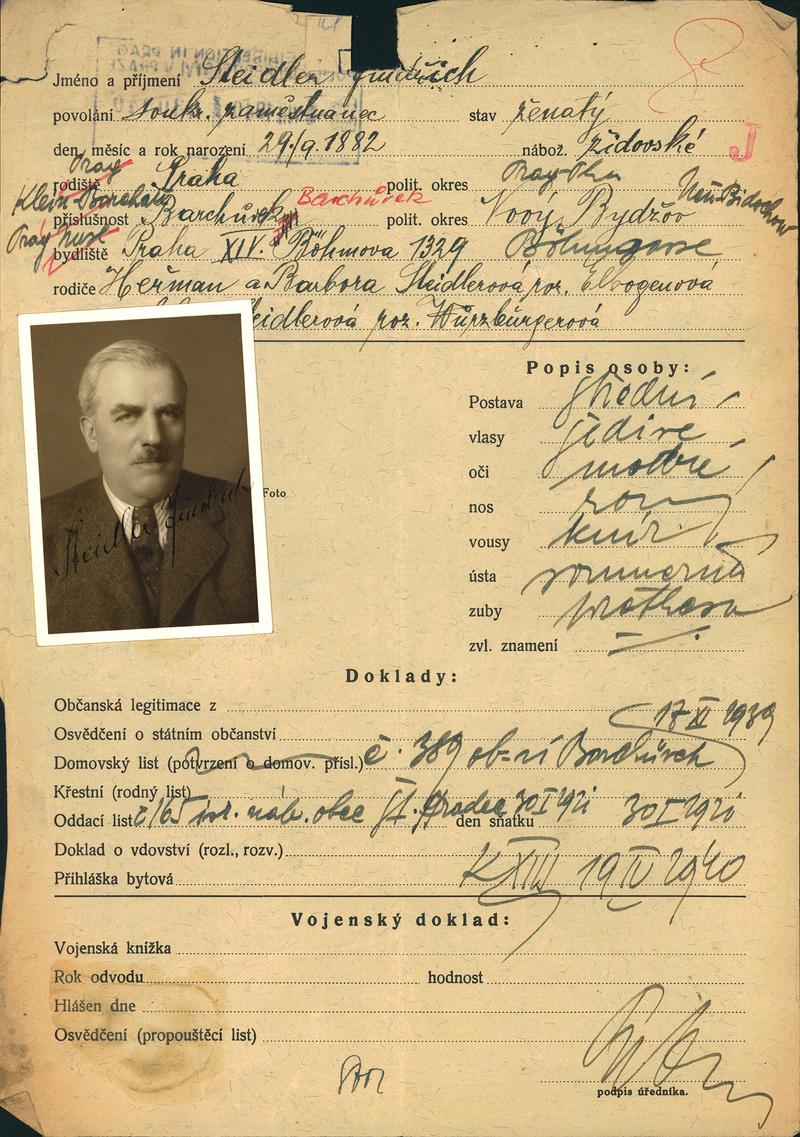 Jméno a příjmení Steidler Jindřich
povolání soukr. zaměstnanec stav ženatý
den, měsíc a rok narození 29./9. 1882 nábož. židovské J
Prag
rodiště Praha polit. okres
Klein Barchow Barchůvek Neu-Bidschow
příslušnost Barchůvek polit. okres Nový Bydžov
Prag Nusl
bydliště Praha XIV. Böhmova 1329 Böhmgasse
rodiče Heřman a Barbora Steidlerová roz. Elbogenová
Steidlerová roz. Würzburgerová
Popis osoby:
Postava střední
vlasy šedivé
oči modré
Foto
nos rovný
vousy knír
Steidler Jindřich
ústa souměrná
zuby prothesa
zvl. znamení
Doklady:
Občanská legitimace z
17 XI 1939
Osvědčení o státním občanství
Domovský list (potvrzení o domov. přísl.) č. 389 Barchůvek
Křestní (rodný list)
Oddací list č/65 isr. náb. obec Hradec 30 I 921 den sňatku 30 I 1921
Doklad o vdovství (rozl., rozv.)
Přihláška bytová K XIII 19 IV 1940
Vojenský doklad:
Vojenská knížka
Rok odvodu hodnost
Hlášen dne
Osvědčení (propouštěcí list)
podpis úředníka.